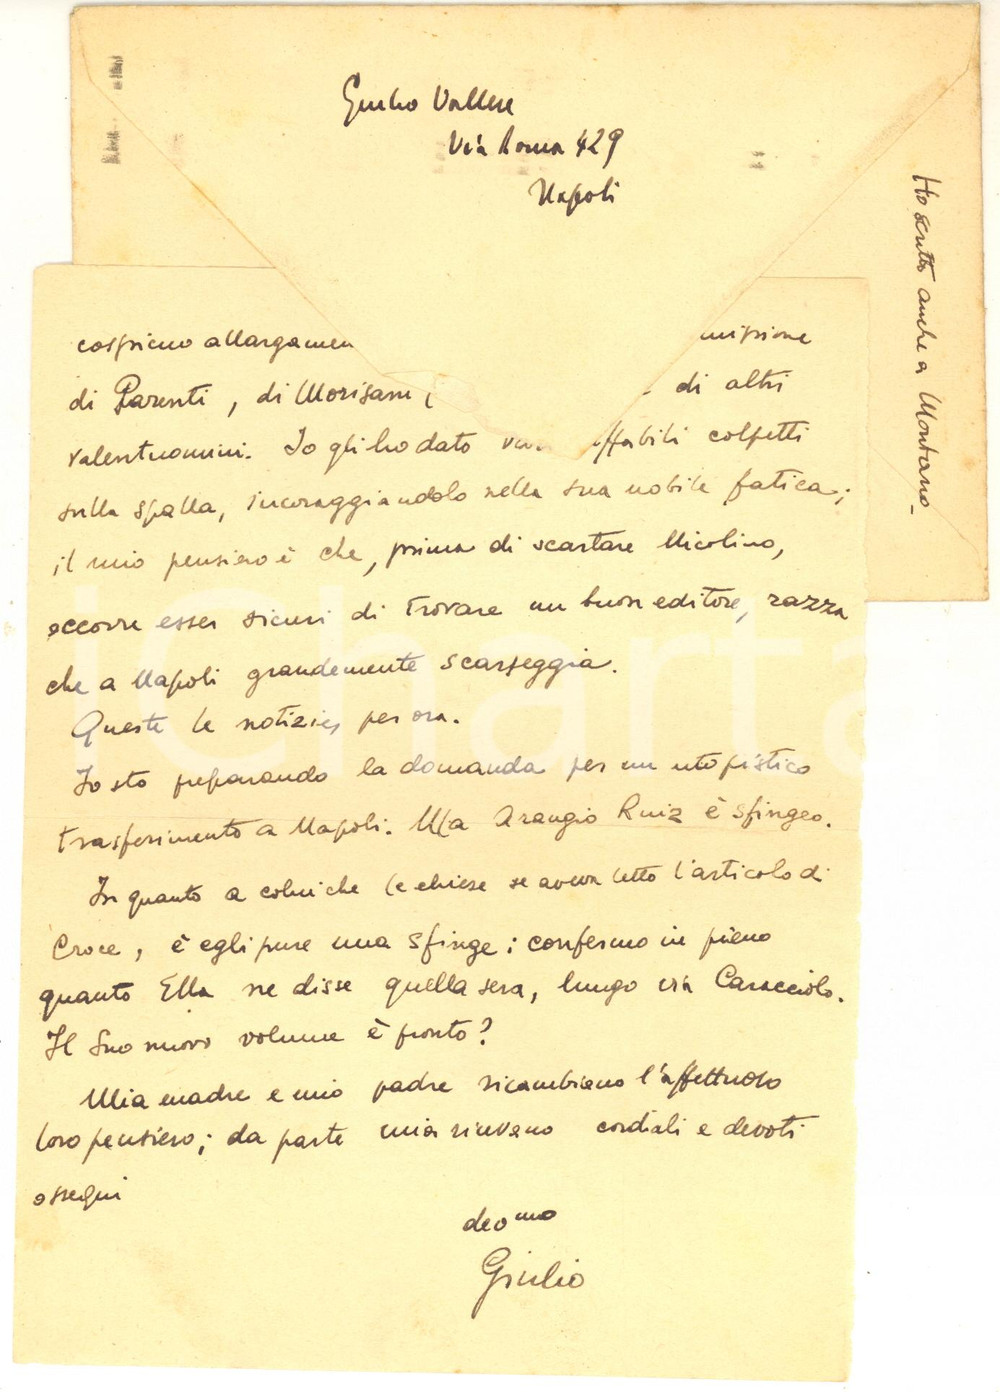 Giulio Vallese
Via Roma 429
Napoli
Ho scritto anche a Montano.
cospicuo allargamen
di Parenti, di Morisani, di altri
valentuomini. Io gli ho dato affabili colpetti
sulla spalla, incoraggiandolo nella sua nobile fatica;
il mio pensiero è che, prima di scartare Nicolino,
occorre esser sicuri di trovare un buon editore, razza
che a Napoli grandemente scarseggia.
Queste le notizie, per ora.
Io sto preparando la domanda per un utopistico
trasferimento a Napoli. Ma Arangio Ruiz è sfingeo.
In quanto a colui che le chiese se aveva letto l'articolo di
Croce, è egli pure una sfinge: confermo in pieno
quanto Ella ne disse quella sera, lungo via Caracciolo.
Il Suo nuovo volume è pronto?
Mia madre e mio padre ricambiano l'affettuoso
loro pensiero; da parte mia ricevano cordiali e devoti
ossequi
devmo
Giulio
iCharta